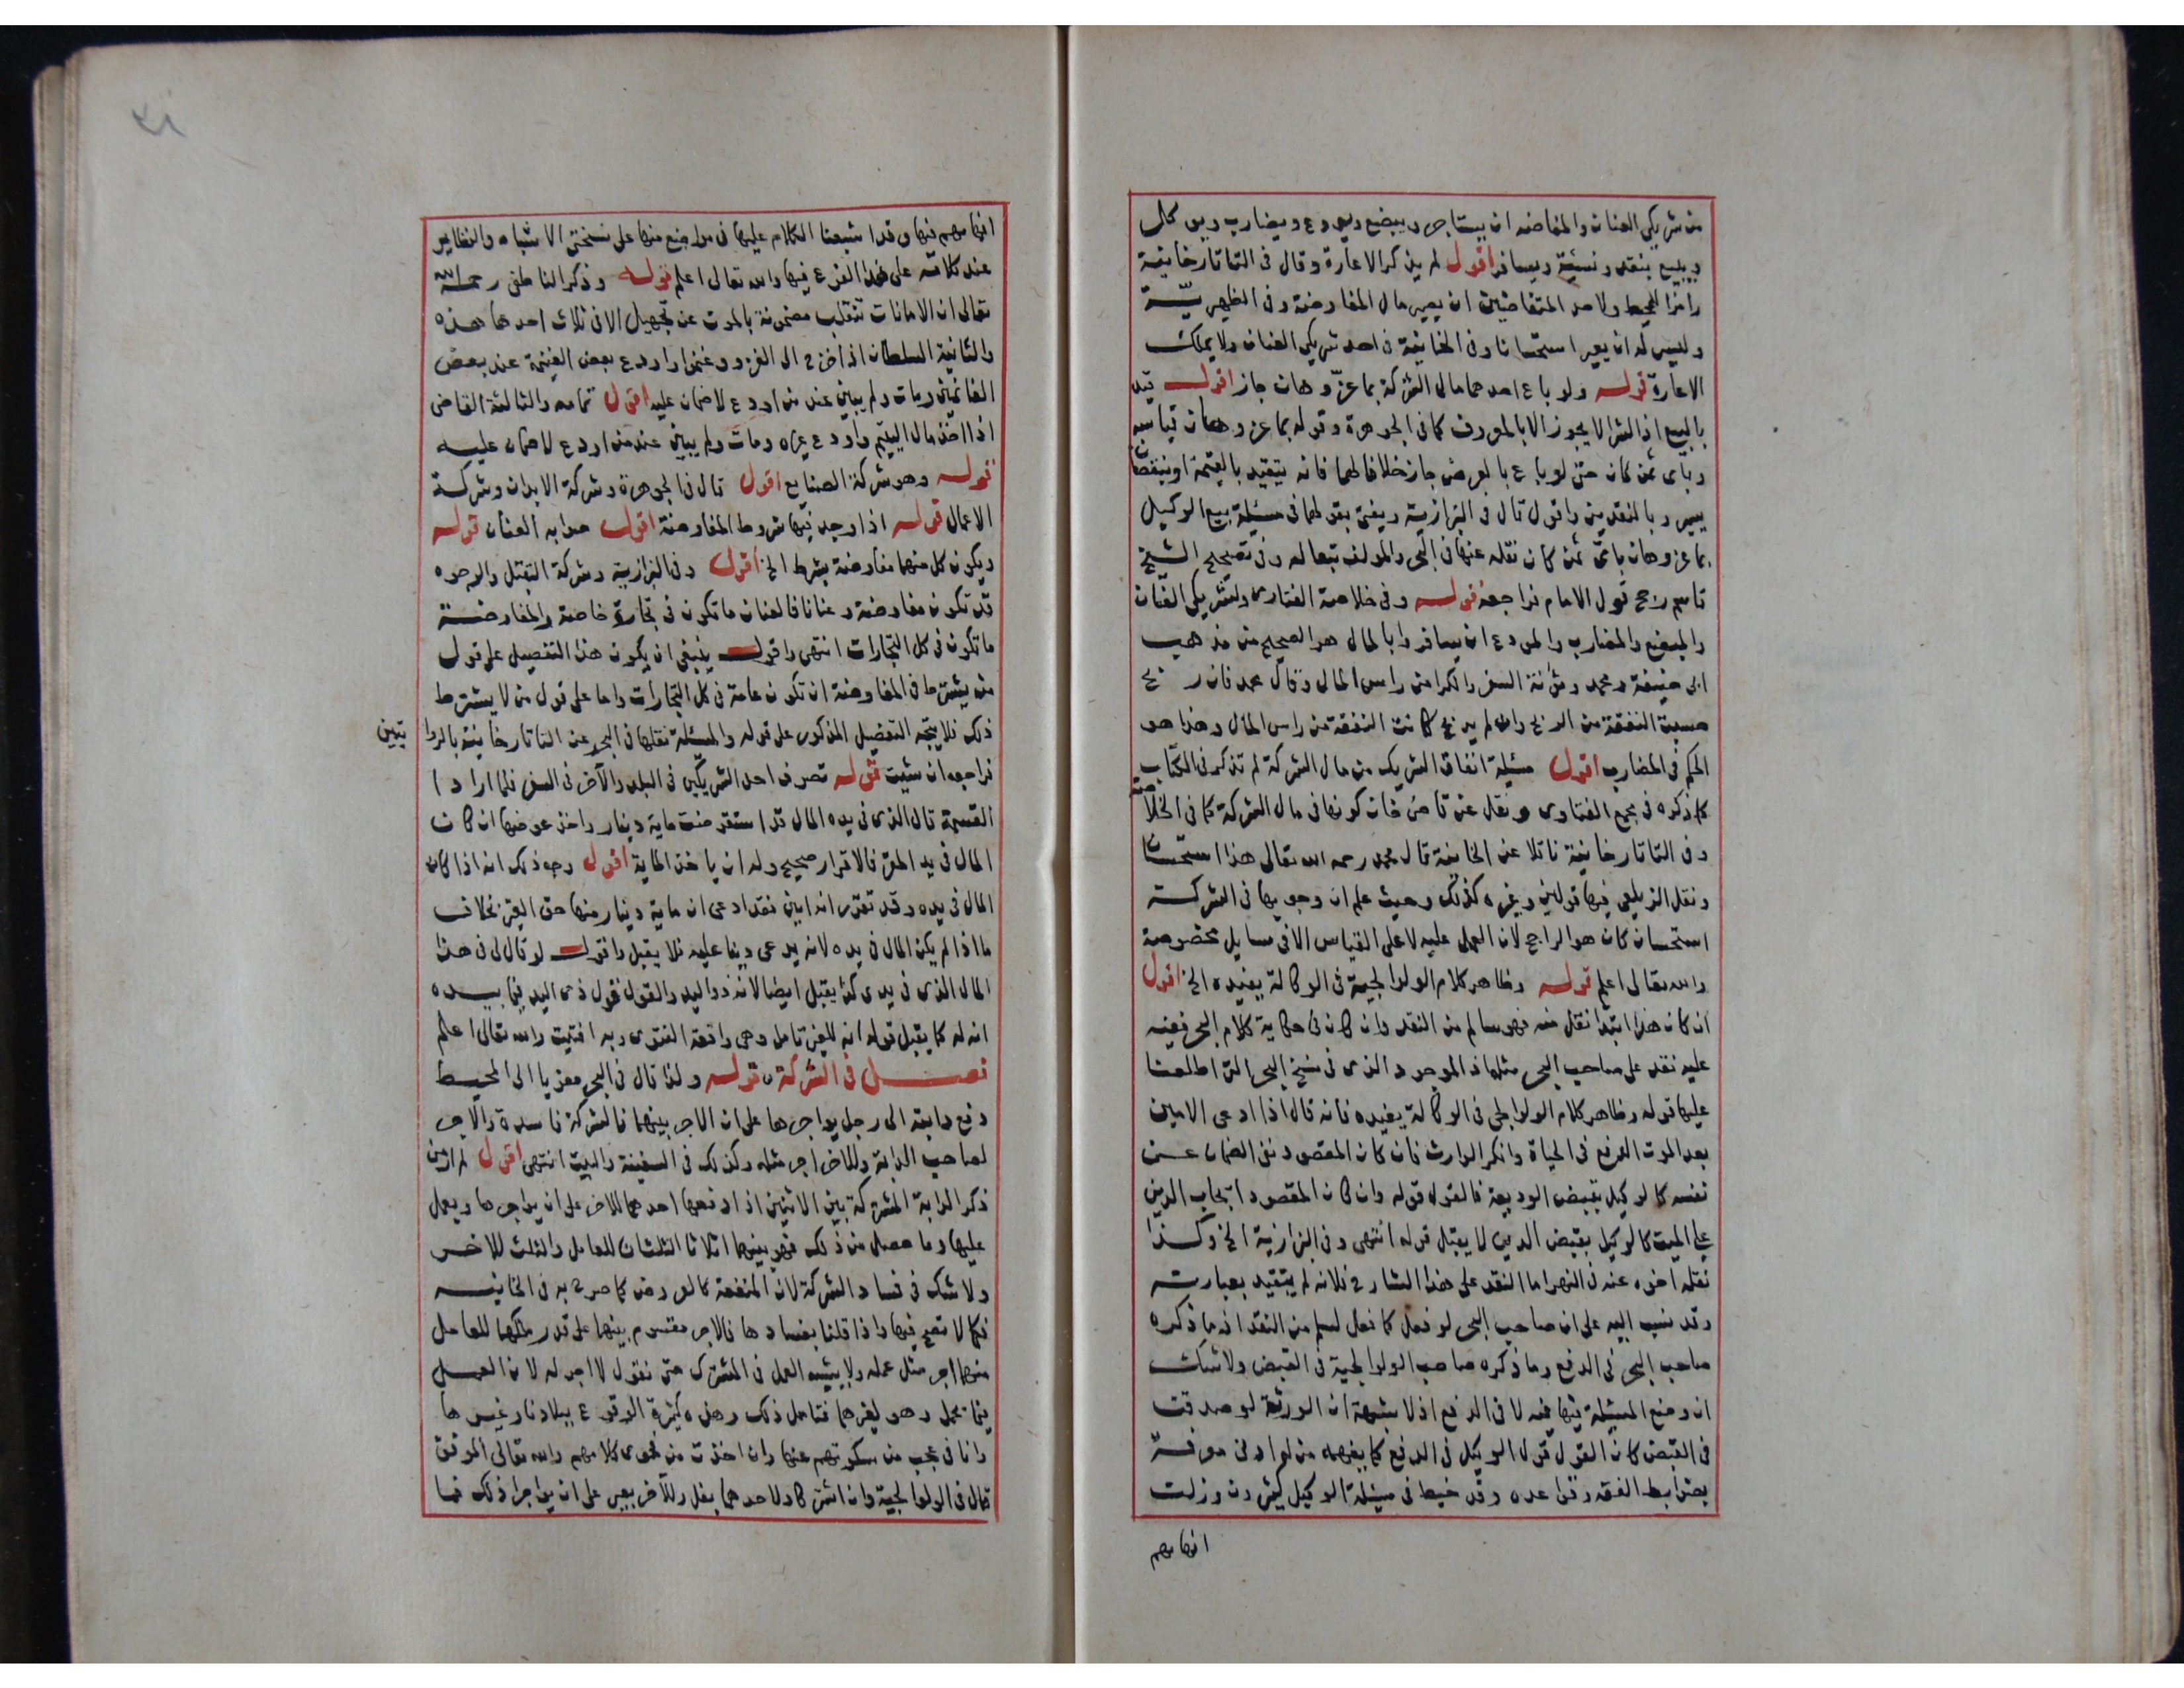 من شريكي العنان والمفاوضه ان يستاجر ويبضع ويودع ويضارب ويوكل
ويبيع بنقد ونسيئة ويسافر اقول لم يذكر الاعارة وقال في التاتارخانية
رامزا للمحيط ولاحد المتفاوضين ان يعير مال المفاوضة وفي الظهيرية
وليس له ان يعير استحسانا وفي الخانية في احد شريكي العنان ولا يملك
الاعارة قوله ولو باع احدهما مال الشركة بما عز وهان جاز اقول قيد
بالبيع اذ الشرا لا يجوز الا بالمعروف كما في الجوهرة وقوله بما عز وهان قياسه
وباى ثمن كان حتى لو باع بالعرض جاز خلافا لهما فانه يتقيد بالقيمة او بنقصان
يسير وبالنقدين واقول قال في البزازية ويفتى بقولهما في مسئلة بيع الوكيل
بما عز وهان باىّ ثمن كان نقله عنها في البحر والمولف تبعا له وفي تصحيح الشيخ
قاسم رجح قول الامام فراجعه قوله وفي خلاصة الفتاوى ولشريكي العنان
والمبضع والمضارب والمودع ان يسافروا بالمال هو الصحيح من مذهب
ابى حنيفة ومحمد ومؤنة السفر والكرا من راس المال وقال محمد فان ربح
حسبت النفقة من الربح وان لم يربح كانت النفقة من راس المال وهذا هو
الحكم في المضارب اقول مسئلة انفاق الشريك من مال الشركة لم تذكر في الكتاب
كما ذكره في مجمع الفتاوى ونقل عن قاضى خان كونها في مال الشركة كما في الخلاصة
وفي التاتارخانية ناقلا عن الخانية قال محمد رحمه الله تعالى هذا استحسان
ونقل الزيلعى فيها قولين وغيره كذلك وحيث علم ان وجوبها في الشركة
استحسان كان هو الراجح لان العمل عليه لا على القياس الا في مسايل مخصوصة
والله تعالى اعلم قوله وظاهر كلام الولوالجية في الوكالة يفيده الخ اقول
ان كان هذا ابتدا نقل منه فهو سالم من النقد وان كان في حكاية كلام البحر ففيه
عليه نقد على صاحب البحر مثله اذ الموجود الذى في نسخ البحر التى اطلعنا
عليها قوله وظاهر كلام الولوالجى في الوكالة يفيده فانه قال اذا ادعى الامين
بعد الموت الدفع في الحياة وانكر الوارث فان كان المقصود نفى الضمان عن
نفسه كالوكيل بقبض الوديعة فالقول قوله وان كان المقصود ايجاب الدين
على الميت كالوكيل بقبض الدين لا يقبل قوله انتهى وفي البزازية الخ وكذا
نقله اخوه عنه في النهر اما النقد على هذا الشارح فلانه لم يتقيد بعبارته
وقد نسب اليه على ان صاحب البحر لو فعل كما فعل لسلم من النقد اذ ما ذكره
صاحب البحر في الدفع وما ذكره صاحب الولوالجية في القبض ولا شك
ان وضع المسئلة فيها فيه لا في الدفع اذ لا شبهة ان الورثة لو صدقت
في القبض كان القول قول الوكيل في الدفع كما يفهمه من له ادنى معرفة
بضوابط الفقه وقواعده وقد خبط في مسئلة الوكيل كثيرون وزلت
افهامهم
افهامهم فيها وقد اشبعنا الكلام عليها في مواضع منها على نسختى الاشباه والنظاير
عند كلامه على هذا الفرع فيها والله تعالى اعلم قوله وذكر الناطفى رحمه الله
تعالى ان الامانات تنقلب مضمونة بالموت عن تجهيل الا في ثلاث احدها هذه
والثانية السلطان اذا خرج الى الغزو وغنموا واودع بعض الغنيمة عند بعض
الغانمين ومات ولم يبين عند من اودع لا ضمان عليه اقول تمامه والثالثة القاضى
اذا اخذ مال اليتيم واودع غيره ومات ولم يبين عند من اودع لا ضمان عليه
قوله وهو شركة الصنايع اقول قال في الجوهرة وشركة الابدان وشركة
الاعمال قوله اذا وجد فيها شروط المفاوضة اقول صوابه العنان قوله
ويكون كل منهما مفاوضة بشرط الخ اقول وفي البزازية وشركة التقبل والوجوه
قد تكون مفاوضة وعنانا فالعنان ما تكون في تجارة خاصة والمفاوضة
ما تكون في كل التجارات انتهى واقول ينبغى ان يكون هذا التفصيل على قول
من يشترط في المفاوضة ان تكون عامة في كل التجارات واما على قول من لا يشترط
ذلك فلا يتجه التفصيل المذكور على قوله والمسئلة نقلها في البحر عن التاتارخانية بالروا
يتين
فراجعه ان شيت قوله تصرف احد الشريكين في البلد والآخر في السفر فلما ارادا
القسمة قال الذى في يده المال قد استقرضت ماية دينار واخذ عوضها ان كان
المال في يد المقر فالاقرار صحيح وله ان ياخذ الماية اقول وجه ذلك انه اذا كان
المال في يده وقد تقرر انه امين فقد ادعى ان ماية دينار منها حق الغير بخلاف
ما اذا لم يكن المال في يده لانه يدعى دينا عليه فلا يقبل واقول لو قال لى في هذا
المال الذى في يدى كذا يقبل ايضا لانه ذو اليد والقول قول ذى اليد فيما بيده
انه له كما يقبل قوله انه للغير تامل وهى واقعة الفتوى وبه افتيت والله تعالى اعلم
فصل في الشركة قوله ولذا قال في البحر معزيا الى المحيط
دفع دابته الى رجل يواجرها على ان الاجر بينهما فالشركة فاسدة والاجر
لصاحب الدابة وللآخر اجر مثله وكذلك في السفينة والبيت انتهى اقول لم ار من
ذكر الدابة المشتركة بين الاثنين اذا دفعها احدهما للاخر على ان يواجرها ويعمل
عليها وما حصل من ذلك فهو بينهما اثلاثا الثلثان للعامل والثلث للاخر
ولا شك في فساد الشركة لان المنفعة كالعروض كما صرح به في الخانيه
فكما لا تصح فيها واذا قلنا بفسادها فالاجر مقسوم بينهما على قدر ملكهما للعامل
منهما اجر مثل عمله ولا يشبه العمل في المشترك حتى نقول لا اجر له لان العمل
فيما يحمل وهو لغيرهما فتامل ذلك وهذه كثيرة الوقوع ببلادنا وغيرها
وانا في عجب من سكوتهم عنها وان اخذت من فحوى كلامهم والله تعالى الموفق
قال في الولوالجية وان اشتركا ولاحدهما بغل وللآخر بعير على ان يواجرا ذلك فما